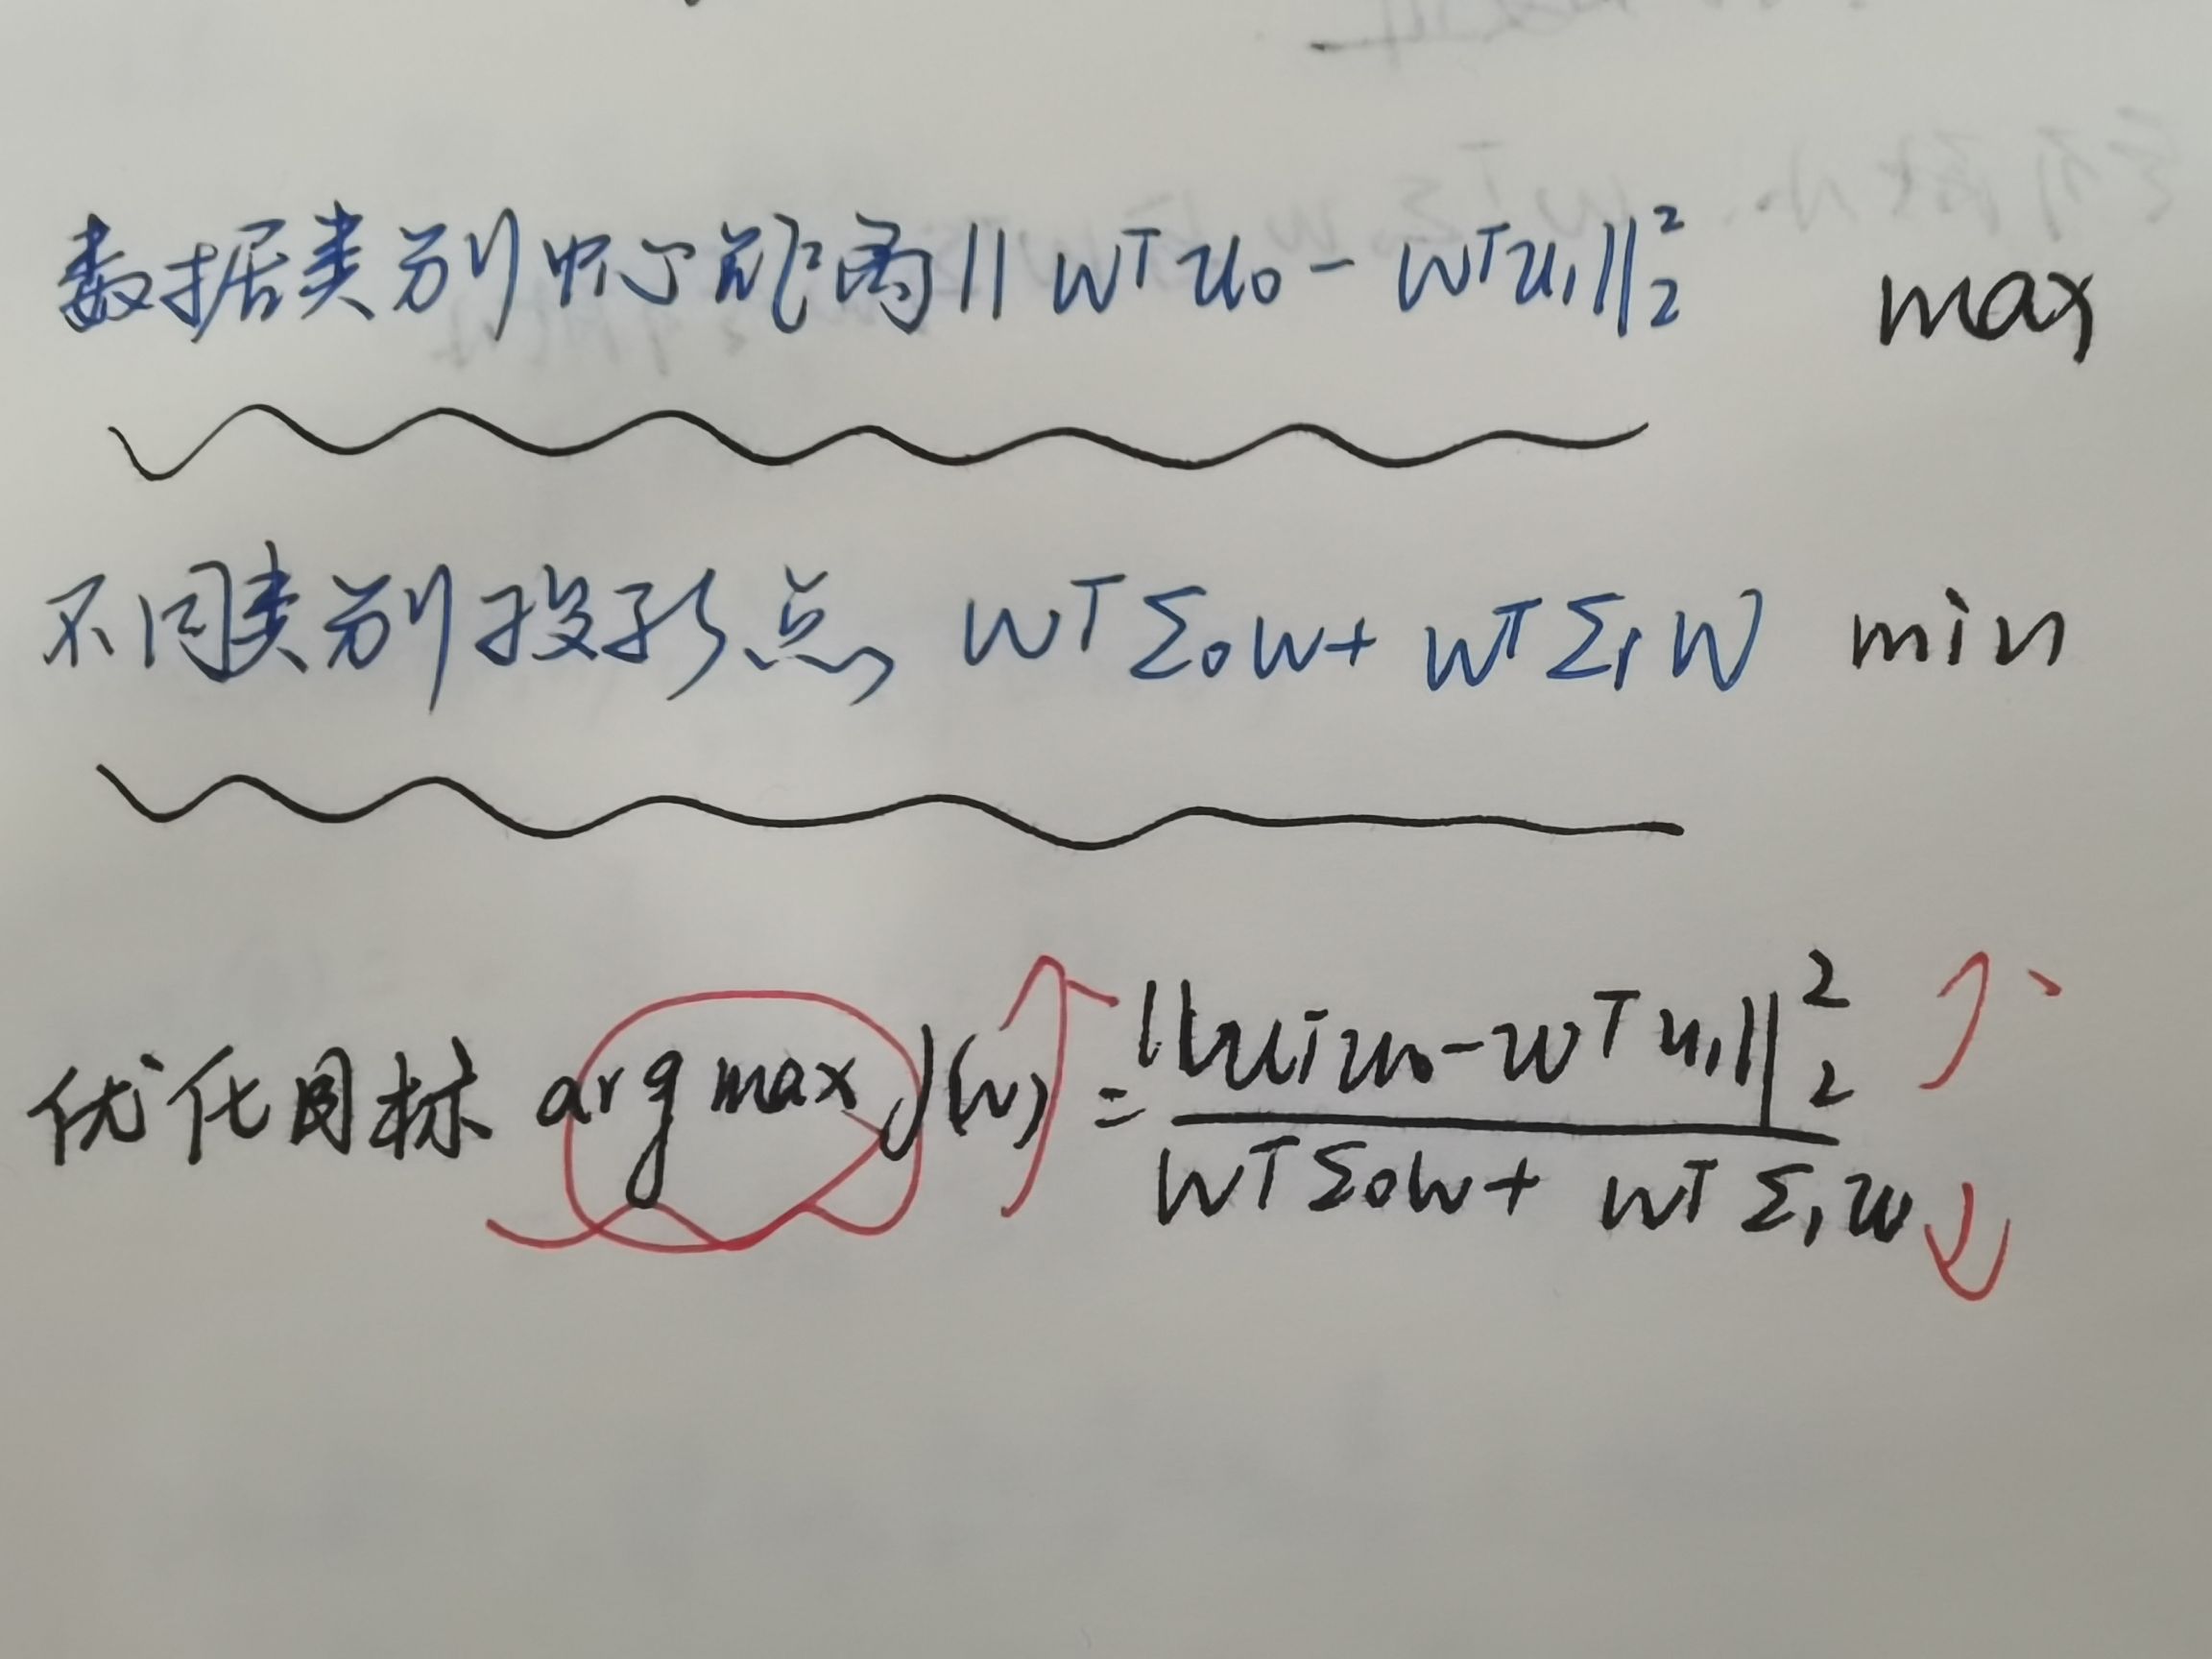 数据类别中心距离 ||wᵀu₀ - wᵀu₁||₂² max
不同类别投影点 wᵀΣ₀w + wᵀΣ₁w min
优化目标 arg max J(w) = ||wᵀu₀ - wᵀu₁||₂² / (wᵀΣ₀w + wᵀΣ₁w)